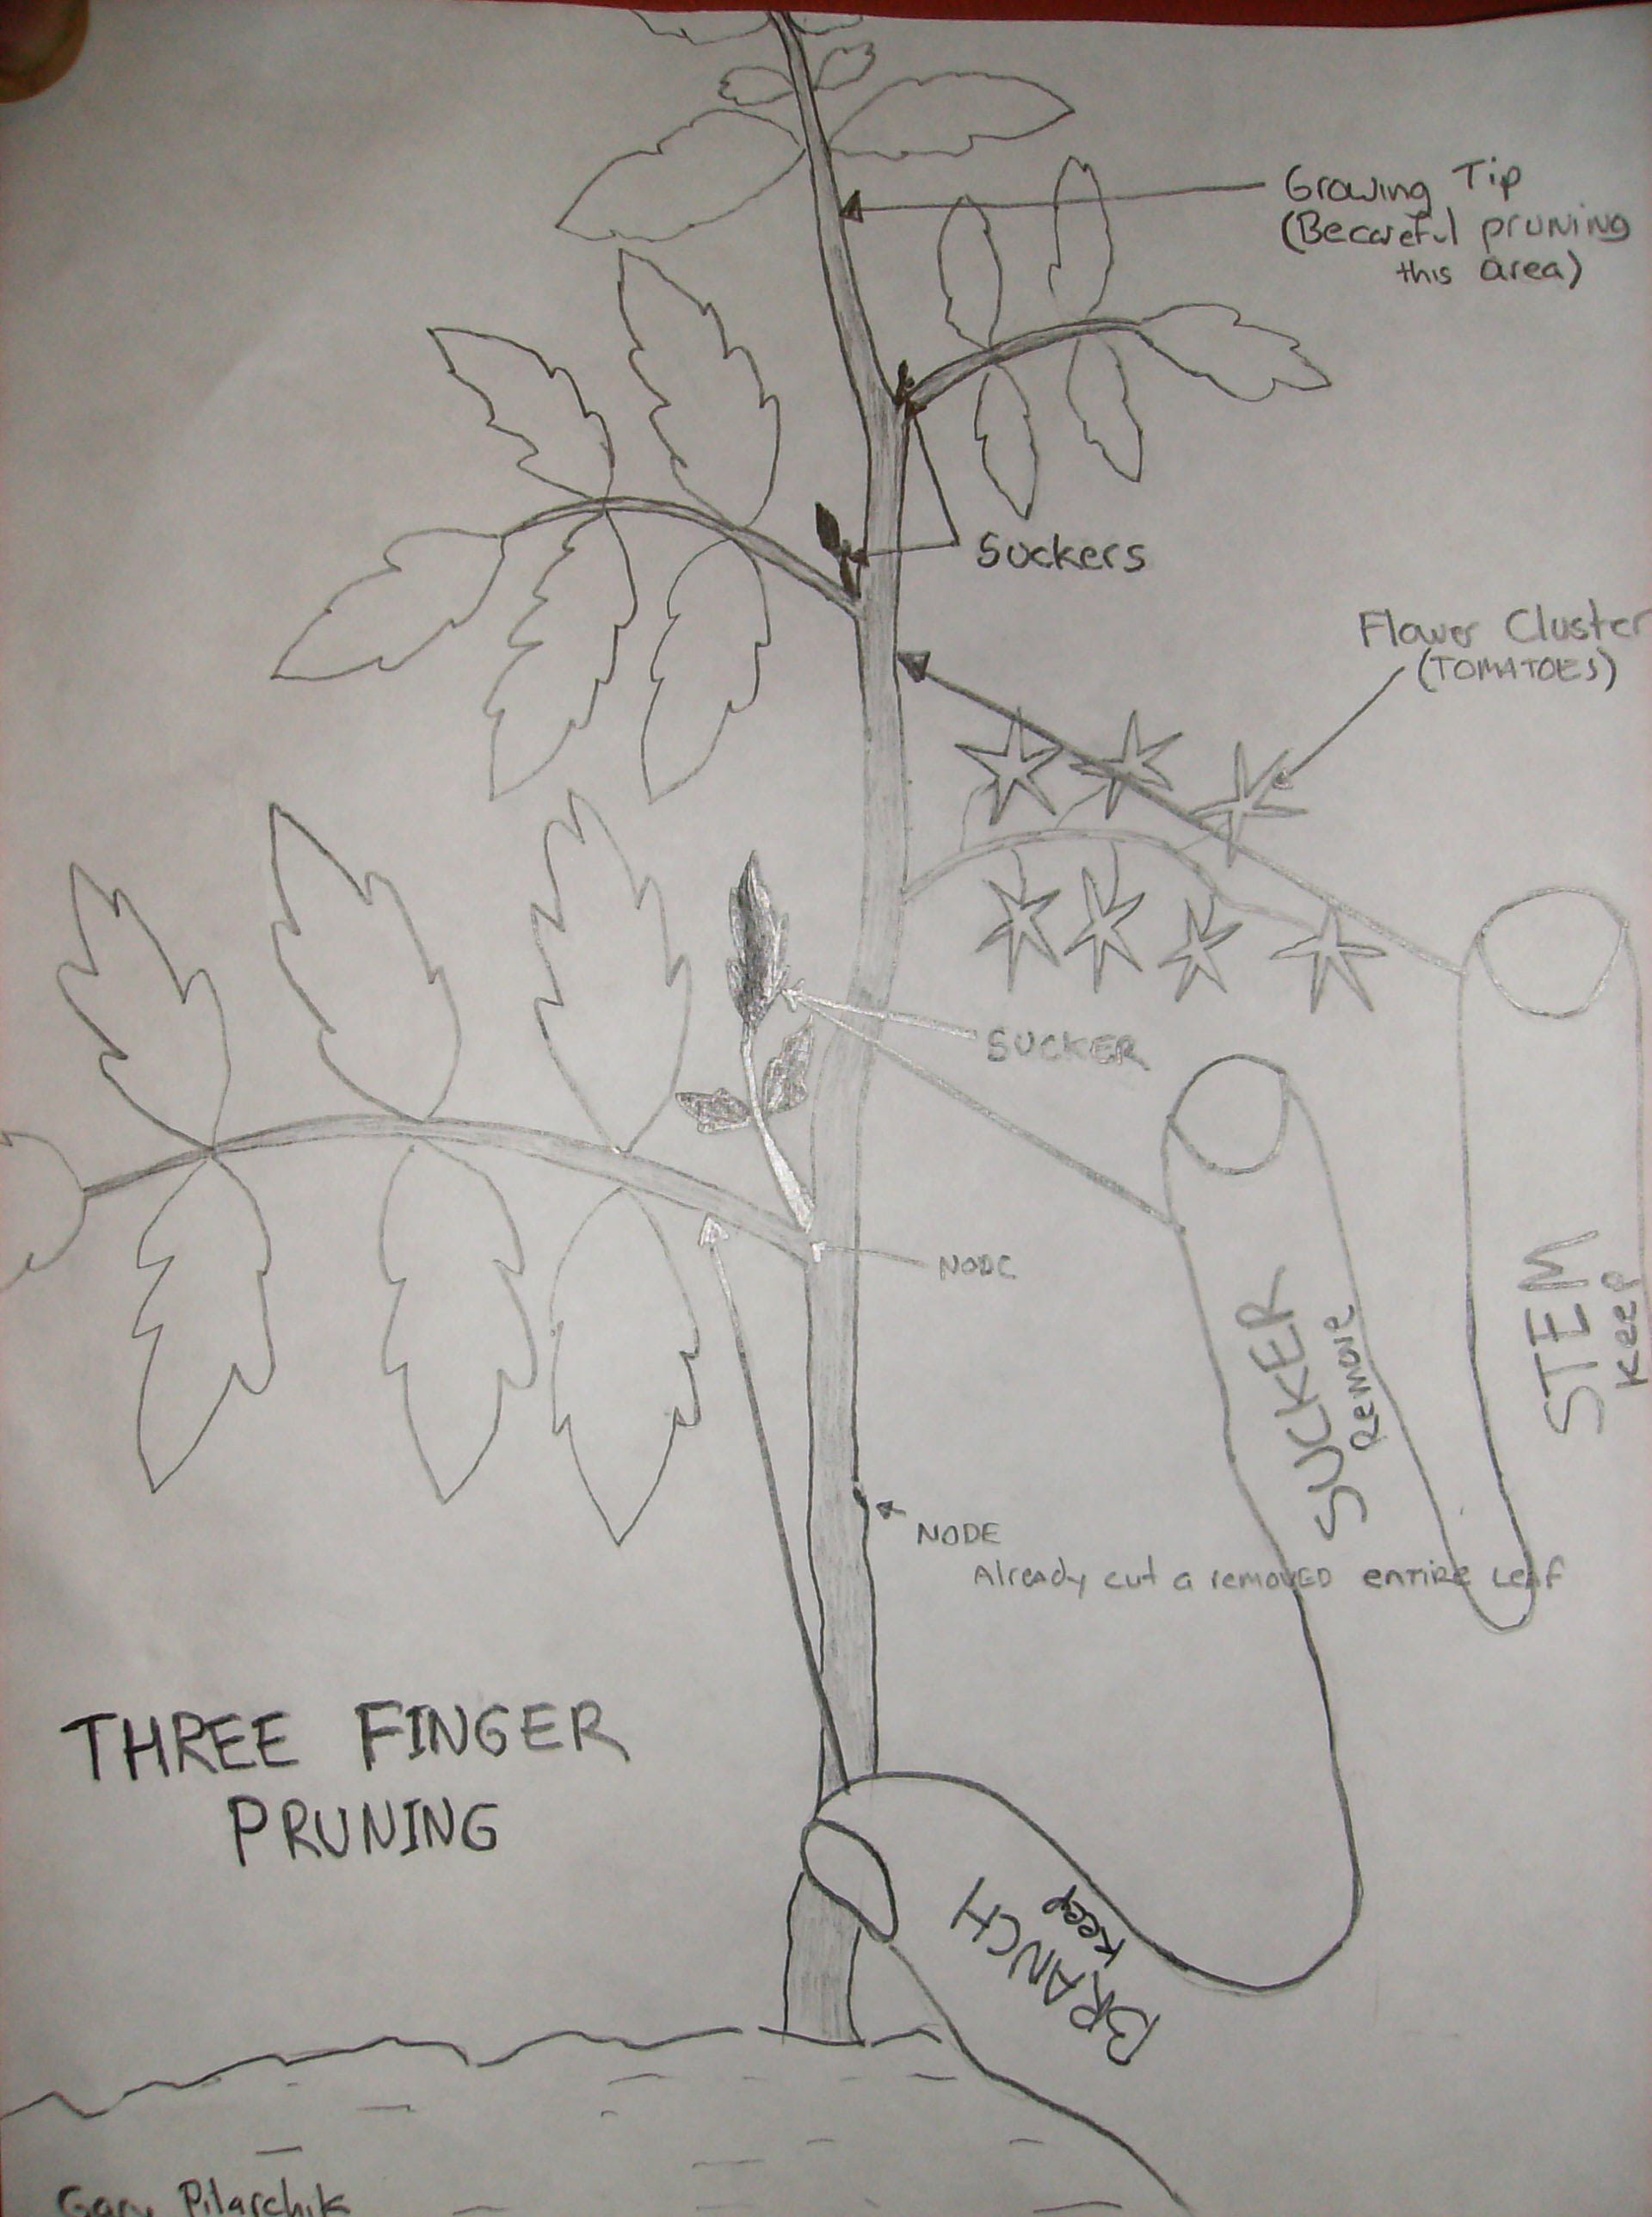 Growing Tip
(Becareful pruning
this area)
Suckers
Flower Cluster
(TOMATOES)
SUCKER
NODE
STEM
Keep
SUCKER
Remove
NODE
Already cut a removed entire leaf
THREE FINGER
PRUNING
BRANCH
Keep
Gary Pilarchik